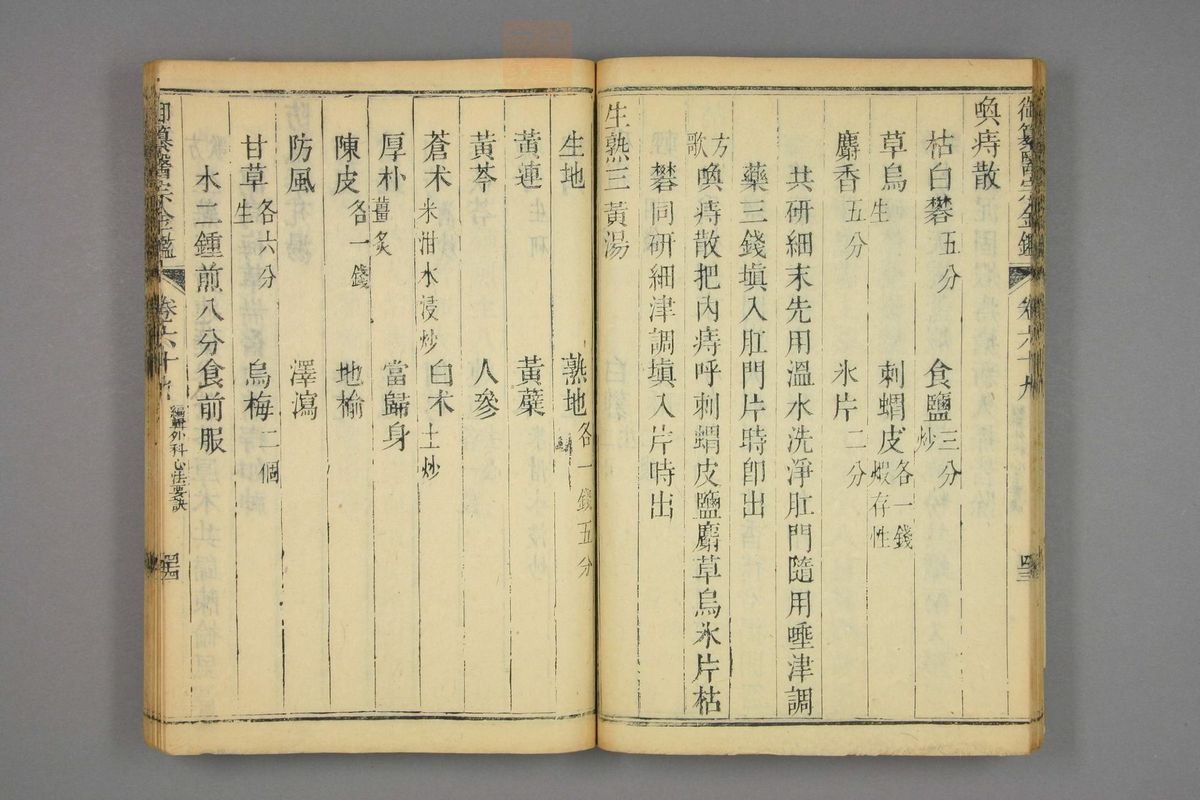 御纂醫宗金鑑 卷六十九 四三
喚痔散
枯白礬五分 食鹽炒三分
草烏生 刺蝟皮煅存性各一錢
麝香五分 冰片二分
共研細末先用溫水洗淨肛門隨用唾津調
藥三錢填入肛門片時卽出
方歌 喚痔散把內痔呼刺蝟皮鹽麝草烏氷片枯
礬同研細津調填入片時出
生熟三黃湯
生地 熟地各一錢五分
黃連 黃蘗
黃芩 人參
蒼术米泔水浸炒 白术土炒
厚朴薑炙 當歸身
陳皮各一錢 地榆
防風 澤瀉
甘草生各六分 烏梅二個
水二鍾煎八分食前服
御纂醫宗金鑑 卷六十九 編輯外科心法要訣 四四